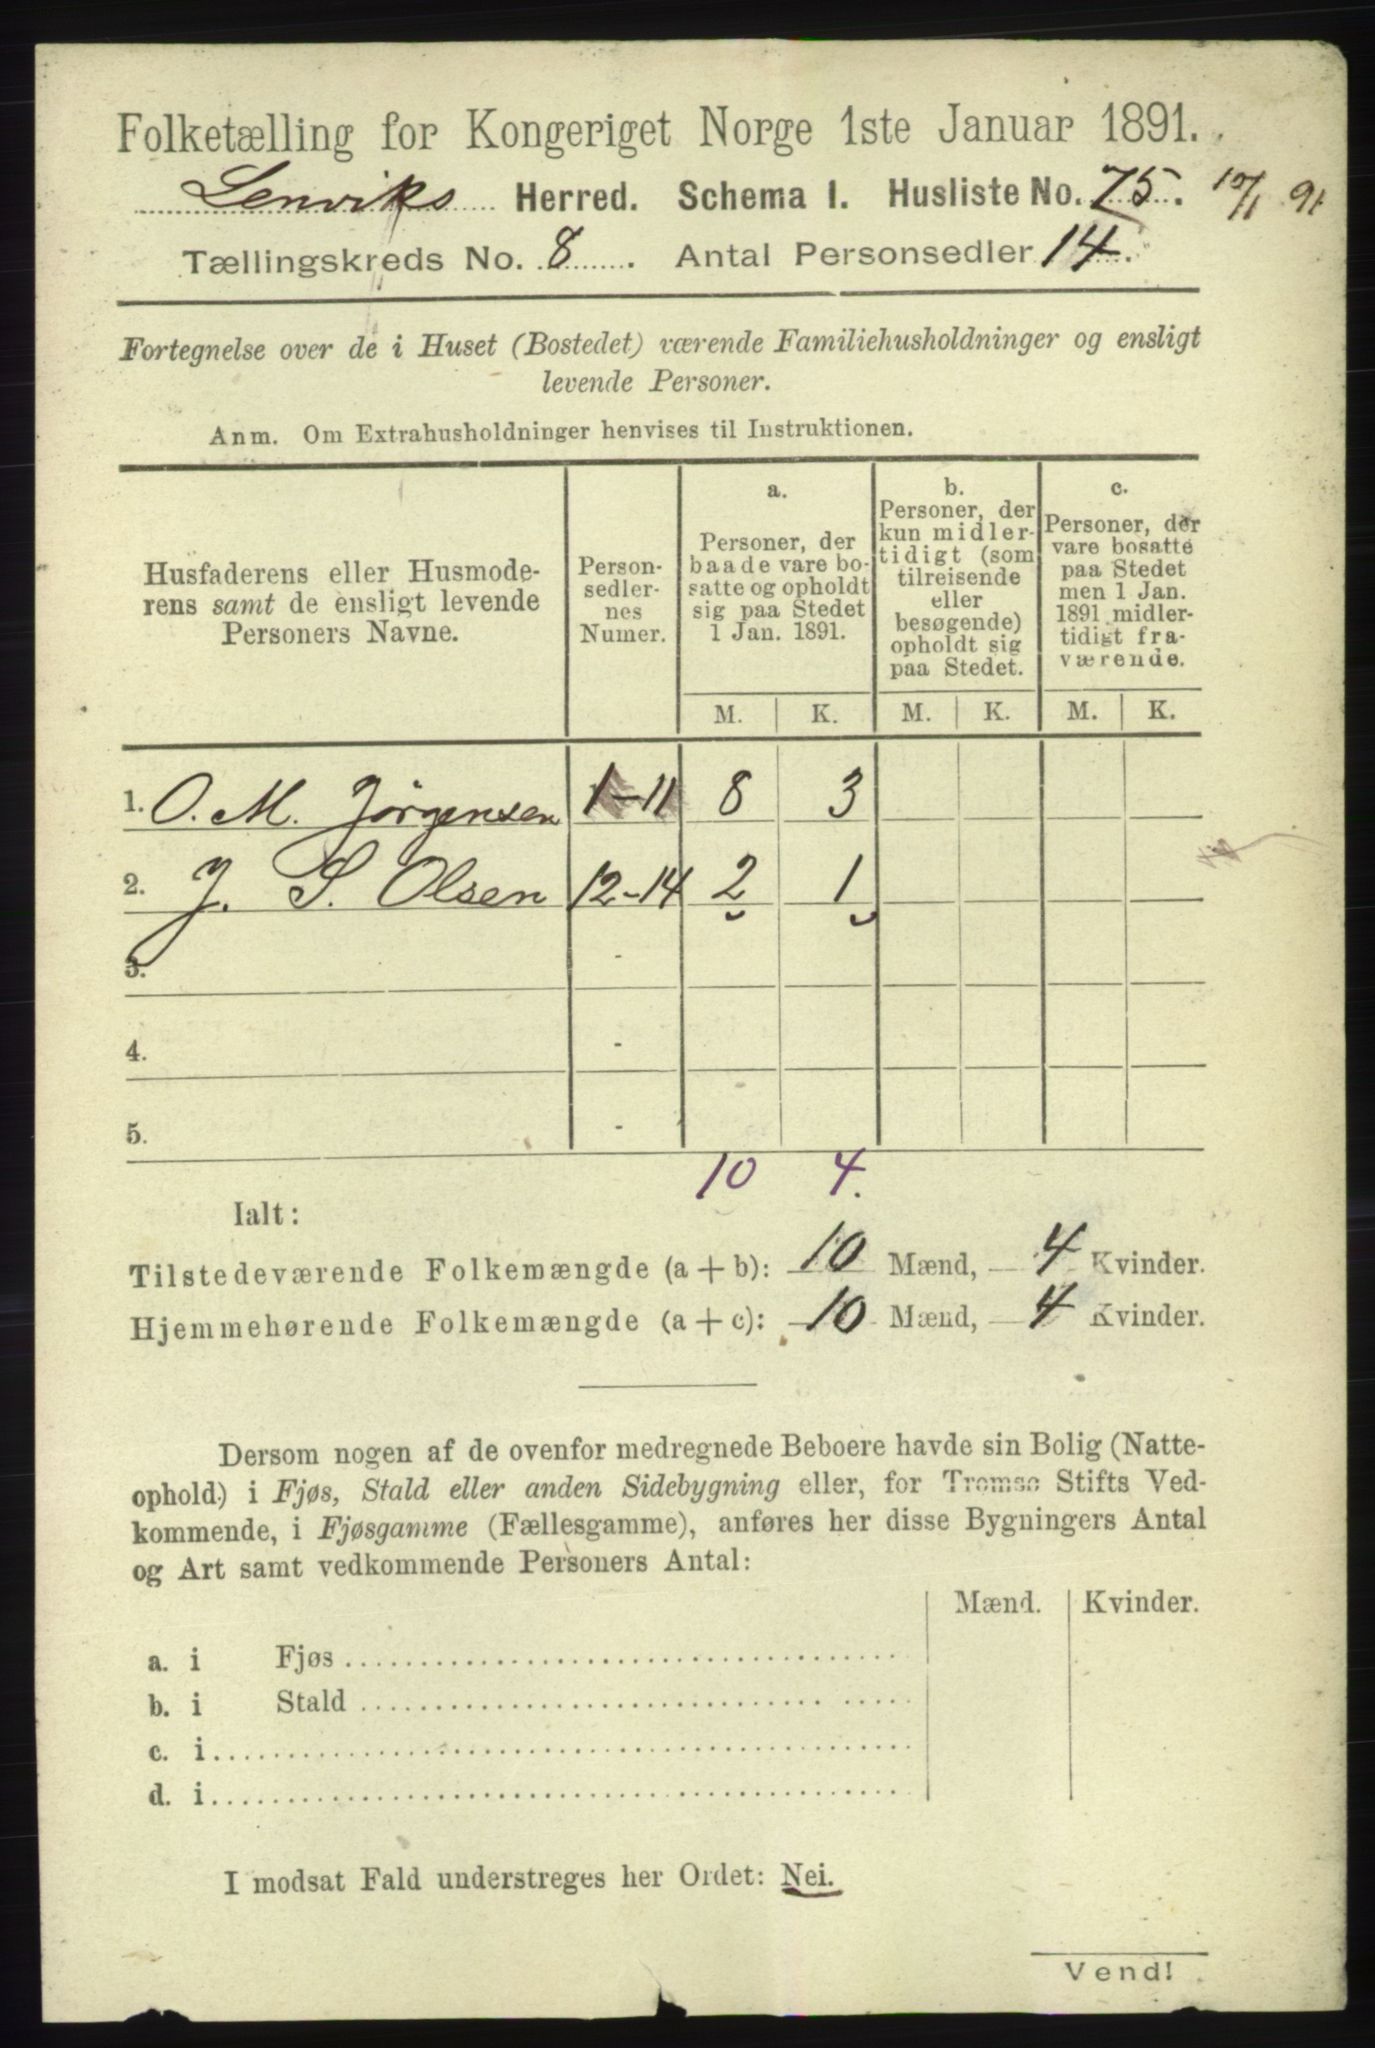 Folketælling for Kongeriget Norge 1ste Januar 1891.
Lenviks Herred. Schema I. Husliste No. 75. 10/1 91
Tællingskreds No. 8. Antal Personsedler 14.
Fortegnelse over de i Huset (Bostedet) værende Familiehusholdninger og ensligt
levende Personer.
Anm. Om Extrahusholdninger henvises til Instruktionen.
Husfaderens eller Husmode-
rens samt de ensligt levende
Personers Navne.
Person-
sedler-
nes
Numer.
a.
Personer, der
baade vare bo-
satte og opholdt
sig paa Stedet
1 Jan. 1891.
b.
Personer, der
kun midler-
tidigt (som
tilreisende
eller
besøgende)
opholdt sig
paa Stedet.
c.
Personer, der
vare bosatte
paa Stedet
men 1 Jan.
1891 midler-
tidigt fra-
værende.
M. K. M. K. M. K.
1. O. M. Jörgensen 1-11 8 3
2. J. S. Olsen 12-14 2 1
3. -
4. -
5. -
10 4.
Ialt:
Tilstedeværende Folkemængde (a + b): 10 Mænd, 4 Kvinder.
Hjemmehørende Folkemængde (a + c): 10 Mænd, 4 Kvinder.
Dersom nogen af de ovenfor medregnede Beboere havde sin Bolig (Natte-
ophold) i Fjøs, Stald eller anden Sidebygning eller, for Tromsø Stifts Ved-
kommende, i Fjøsgamme (Fællesgamme), anføres her disse Bygningers Antal
og Art samt vedkommende Personers Antal:
Mænd. Kvinder.
a. i Fjøs
b. i Stald
c. i
d. i
I modsat Fald understreges her Ordet: Nei.
Vend!